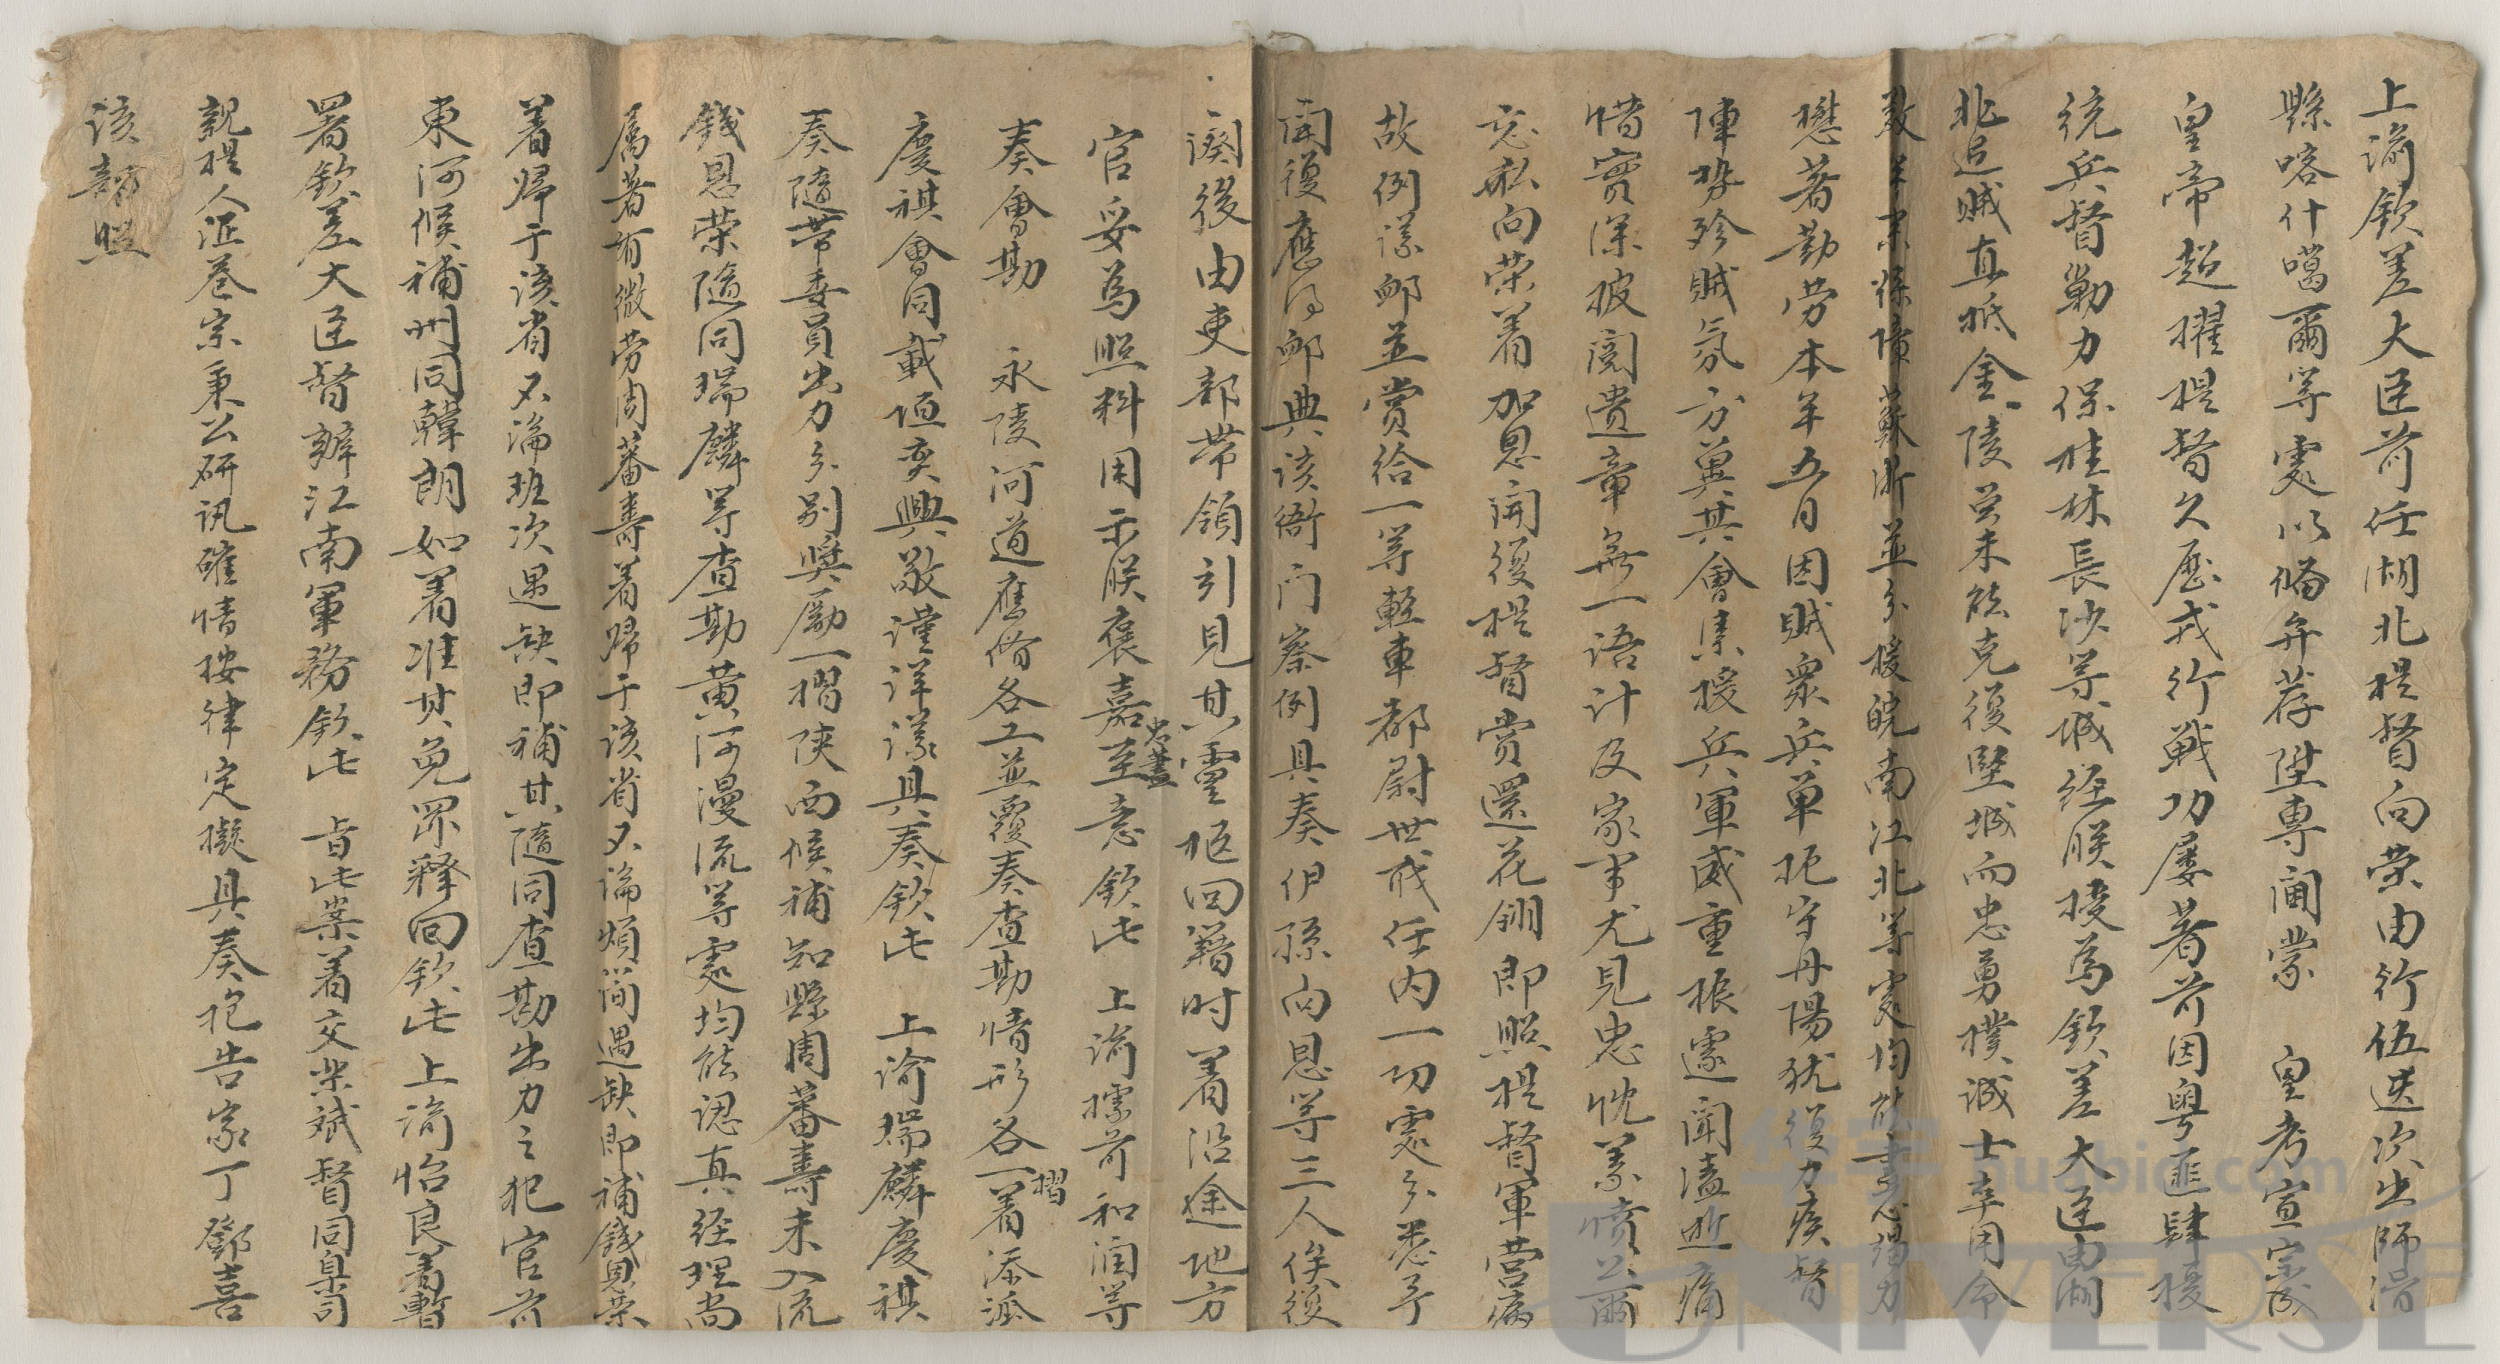 上諭欽差大臣前任湖北提督向荣由行伍迭次出師滑
縣喀什噶爾等處以偹弁荐陞專閫蒙　皇考宣宗成
皇帝超擢提督久歷戎行戰功屡著前因粤匪肆擾
統兵督勦力保桂林長沙等城经朕授為欽差大臣由湖
北追賊直抵金陵雖未能克復堅城而忠勇撲誠士卒用命
数年来保障蘇浙並分援皖南江北等處均能盡心竭力
懋著勤劳本年五月因賊衆兵单扼守丹陽犹復力疾督
陣勢殄賊氛方冀其會集援兵軍威重振遽闻溘逝痛
惜實深披閱遺章無一语计及家事尤見忠忱素愤
忘躯向荣着加恩開復提督賞還花翎即照提督軍营病
故例議邺並賞给一等輕車都尉世戝任内一切處分悉予
開復應得邺典该衙门察例具奏伊孫向恩等三人俟後
阕後由吏部带領引見其靈柩回籍时着沿途地方
官妥為照料用示朕褒嘉忠藎至意欽此　上諭據前和润等
奏會勘　永陵河道應修各工並覆奏查勘情形各一摺着添派
慶祺會同載垣奕興敬谨详議具奏欽此　上諭瑞麟慶祺
奏随带委員出力分别奬勵一摺陕西候補知縣周蕃壽未入流
錢恩荣隨同瑞麟等查勘黄河漫流等處均能認真经理尚
属著有微劳周蕃壽着歸于该省不論煩简遇缺即補錢恩荣
着歸于该省不論班次遇缺即補其隨同查勘出力之犯官前
東河候補州同韓朗如着准其免罪釋回欽此上諭怡良着暫
署欽差大臣督辦江南軍務欽此　旨此案着交樂斌督同臬司
親提人证卷宗秉公研讯確情按律定擬具奏抱告家丁鄧喜
该部照